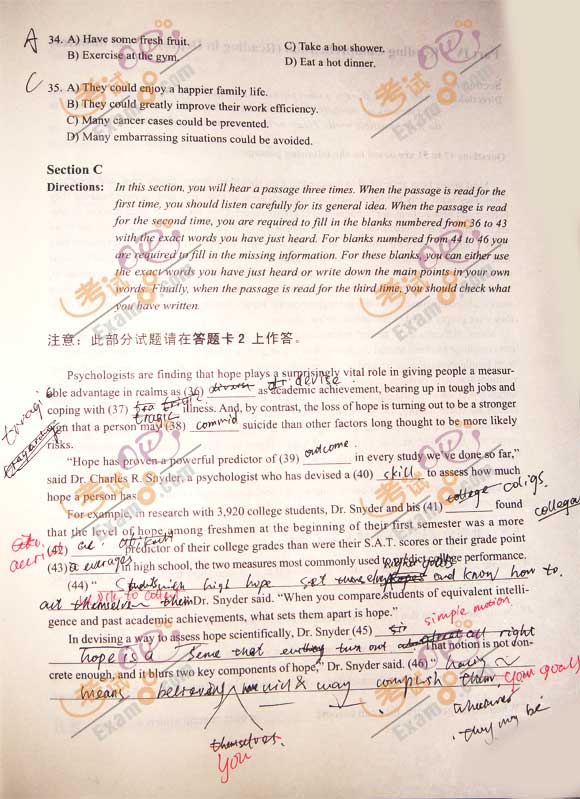 A 34. A) Have some fresh fruit. C) Take a hot shower.
B) Exercise at the gym. D) Eat a hot dinner.
C 35. A) They could enjoy a happier family life.
B) They could greatly improve their work efficiency.
C) Many cancer cases could be prevented.
D) Many embarrassing situations could be avoided.
Section C
Directions: In this section, you will hear a passage three times. When the passage is read for the
first time, you should listen carefully for its general idea. When the passage is read
for the second time, you are required to fill in the blanks numbered from 36 to 43
with the exact words you have just heard. For blanks numbered from 44 to 46 you
are required to fill in the missing information. For these blanks, you can either use
the exact words you have just heard or write down the main points in your own
words. Finally, when the passage is read for the third time, you should check what
you have written.
注意：此部分试题请在答题卡 2 上作答。
Psychologists are finding that hope plays a surprisingly vital role in giving people a measur-
able advantage in realms as (36) as academic achievement, bearing up in tough jobs and
coping with (37) tragic illness. And, by contrast, the loss of hope is turning out to be a stronger
sign that a person may (38) commid suicide than other factors long thought to be more likely
risks.
"Hope has proven a powerful predictor of (39) outcome in every study we've done so far,"
said Dr. Charles R. Snyder, a psychologist who has devised a (40) skill to assess how much
hope a person has.
For example, in research with 3,920 college students, Dr. Snyder and his (41) college coligs. found
that the level of hope among freshmen at the beginning of their first semester was a more
(42) predictor of their college grades than were their S.A.T. scores or their grade point
(43) averages in high school, the two measures most commonly used to predict college performance.
(44) " Students high hope set and know how to
work to
themselves Dr. Snyder said. "When you compare students of equivalent intelli-
gence and past academic achievements, what sets them apart is hope."
simple motion
In devising a way to assess hope scientifically, Dr. Snyder (45)
hope is a sense that turn out all right That notion is not con-
crete enough, and it blurs two key components of hope," Dr. Snyder said. (46) " having
means believing will & way complish them your goals
whatever
they may be
themselves.
you
考试
Exam8.com